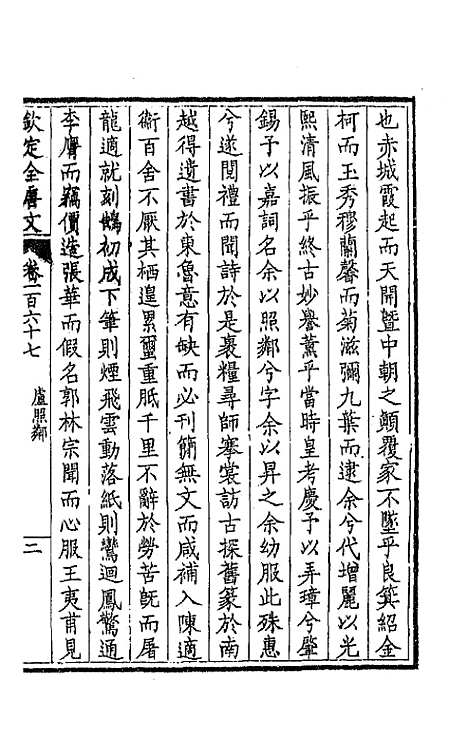 也赤城霞起而天開暨中朝之顛覆家不墜乎良箕紹金
柯而玉秀穆蘭馨而菊滋彌九葉而逮余兮代增麗以光
熙清風振乎終古妙譽薰乎當時皇考慶予以弄璋兮肇
錫予以嘉詞名余以照鄰兮字余以昇之余幼服此殊惠
兮遂閲禮而聞詩於是裹糧尋師搴裳訪古探舊篆於南
越得遺書於東魯意有缺而必刊簡無文而咸補入陳適
衛百舍不厭其栖遑累璽重胝千里不辭於勞苦旣而屠
龍適就刻鵠初成下筆則煙飛雲動落紙則鸞迴鳳驚通
李膺而竊價造張華而假名郭林宗聞而心服王夷甫見
欽定全唐文 卷一百六十七 盧照鄰 二